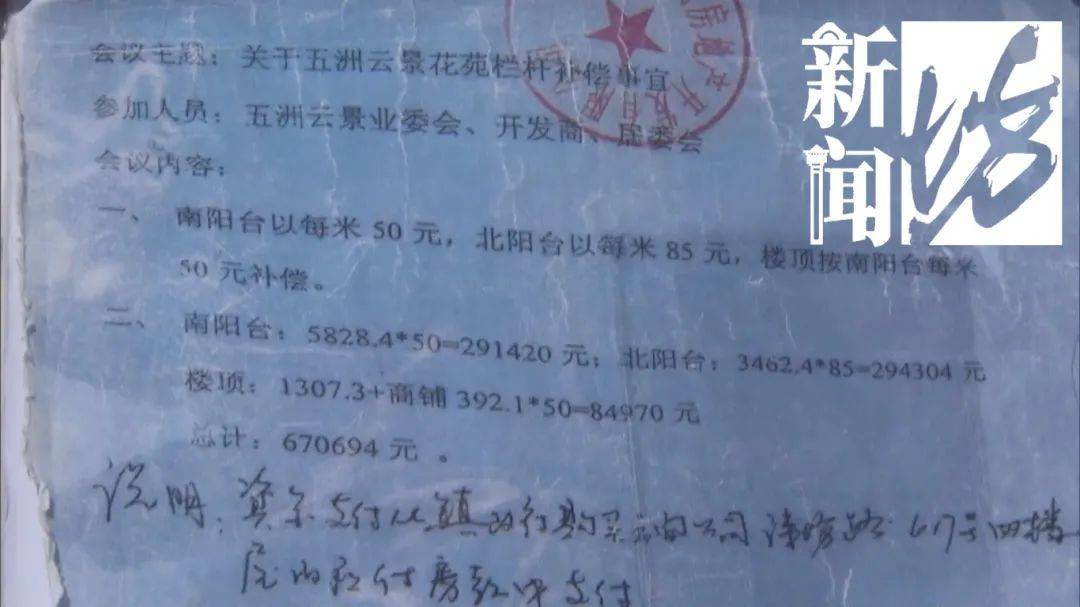 新闻
会议主题：关于五洲云景花苑栏杆补偿事宜
参加人员：五洲云景业委会、开发商、居委会
会议内容：
一、南阳台以每米 50 元，北阳台以每米 85 元，楼顶按南阳台每米
50 元补偿。
二、南阳台：5828.4*50=291420 元；北阳台：3462.4*85=294304 元
楼顶：1307.3+商铺 392.1*50=84970 元
总计：670694 元 。
说明：资金支付从镇政府购买 公司 617号四楼
房款中支付